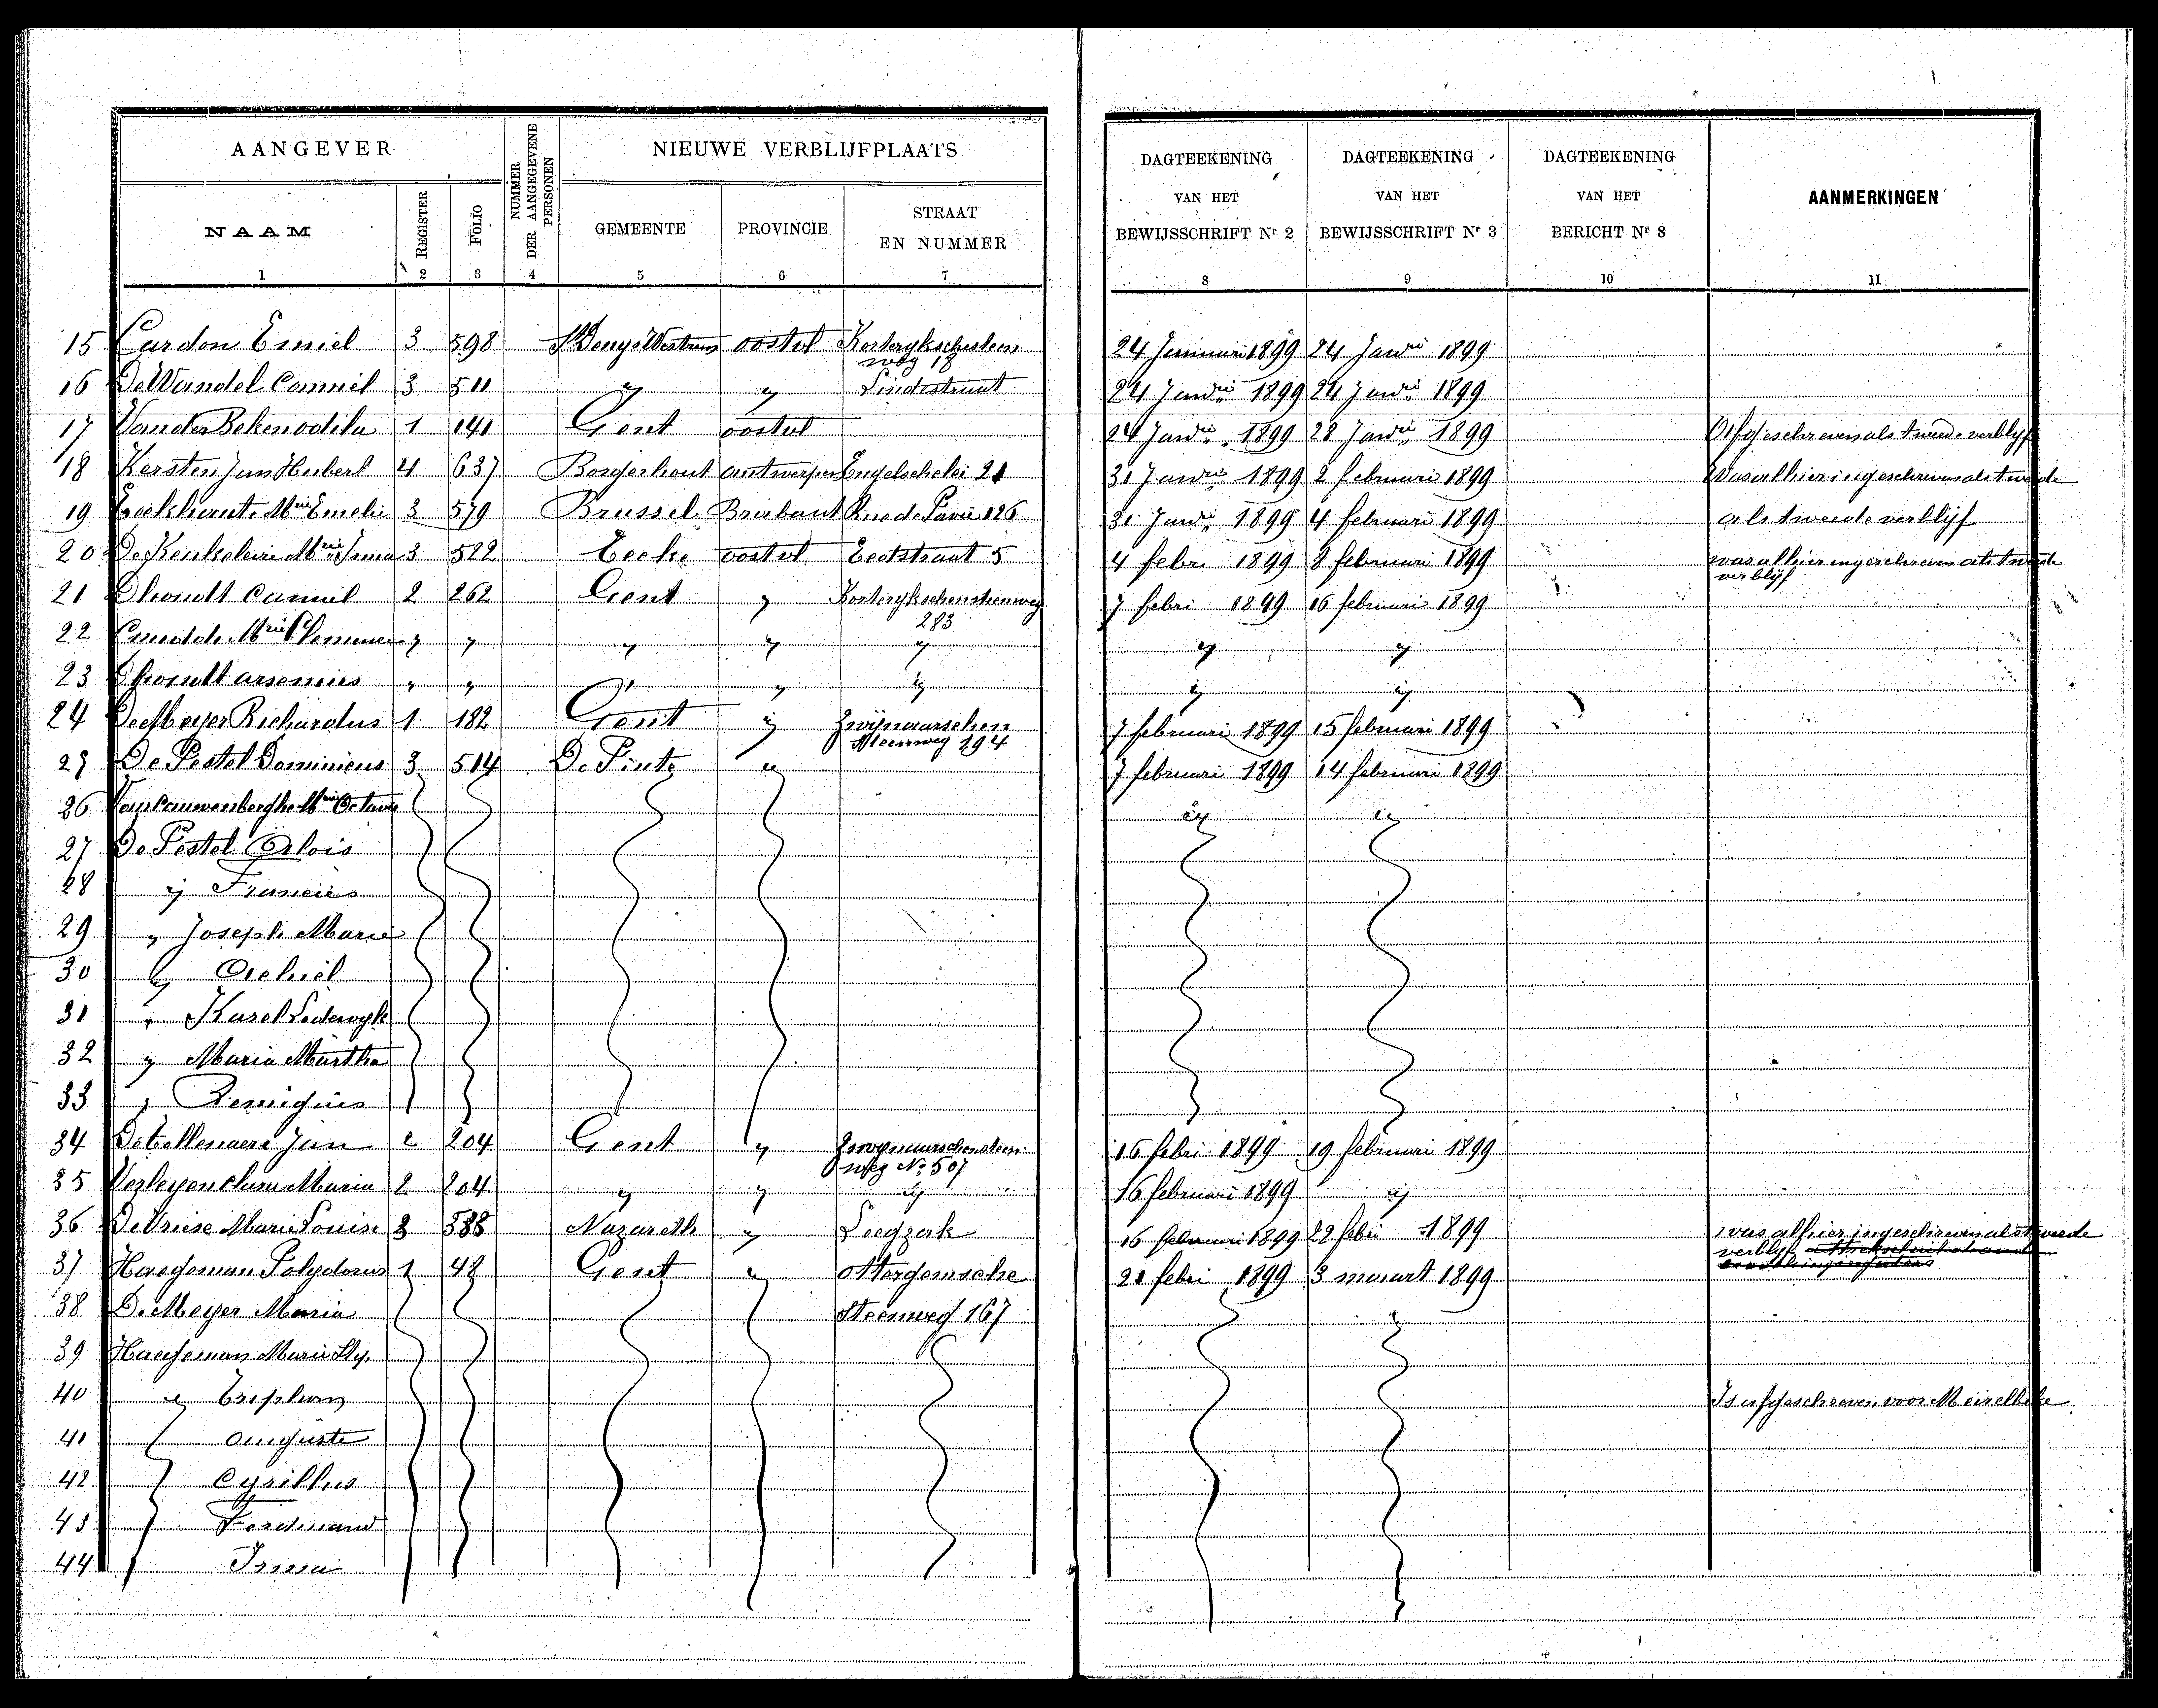 AANGEVER
NUMMER DER AANGEGEVENE PERSONEN
NIEUWE VERBLIJFPLAATS
DAGTEEKENING VAN HET BEWIJSSCHRIFT Nr 2
DAGTEEKENING VAN HET BEWIJSSCHRIFT Nr 3
DAGTEEKENING VAN HET BERICHT Nr 8
AANMERKINGEN
NAAM REGISTER FOLIO GEMEENTE PROVINCIE STRAAT EN NUMMER
1 2 3 4 5 6 7 8 9 10 11
15 Cardon Emiel 3 598 oostvl 24 Januari 1899 24 Jari 1899
weg 18
16 De Wandel Camiel 3 511 " " Lindestraat 24 Jari 1899 24 Jari 1899
17 1 141 Gent oostvl 24 Jari 1899 28 Jari 1899 Afgeschreven als tweede verblijf
18 Kersten Jan Hubert 4 637 Borgerhout antwerpen Engelschelei 21 31 Jari 1899 2 februari 1899 Was alhier ingeschreven als tweede
19 Eeckhaute Mrie Emelie 3 579 Brussel Brabant Rue de Pavie 126 31 Jari 1899 4 februari 1899 als tweede verblijf
20 De Keukeleire Mrie Irma 3 522 Eecke oostvl 5 4 febri 1899 8 februari 1899 was alhier ingeschreven als tweede
verblijf
21 Dhondt Camiel 2 262 Gent " Kortrykschensteenweg 7 febri 1899 16 februari 1899
283
22 Mrie " " " " " " "
23 Dhondt arsenius " " " " " " "
24 De Meyer Richardus 1 182 Gent " Zwijnaarschen 7 februari 1899 15 februari 1899
Steenweg 194
25 De Pestel Dominicus 3 514 De Pinte " 7 februari 1899 14 februari 1899
26 Van Cauwenberghe Mrie Octavie " "
27 De Pestel Alois
28 " Francies
29 " Joseph Marie
30 " Achiel
31 " Karel Lodewyk
32 " Maria Martha
33 " Remigius
34 Jan 2 204 Gent " Zwynaarschensteen 16 febri 1899 19 februari 1899
weg No 507
35 Verleyen Clara Maria 2 204 " " " 16 februari 1899 "
36 De Vriese Marie Louise 3 588 Nazareth " 16 februari 1899 22 febri 1899 was alhier ingeschreven als tweede
verblijf
37 Haegeman Polydorus 1 42 Gent " 21 febri 1899 3 maart 1899
38 De Meyer Maria Steenweg 167
39 Haegeman Marie
40 " Is afgeschreven voor Meirelbeke
41 Auguste
42 Cyrillus
43 Ferdinand
44 Irma